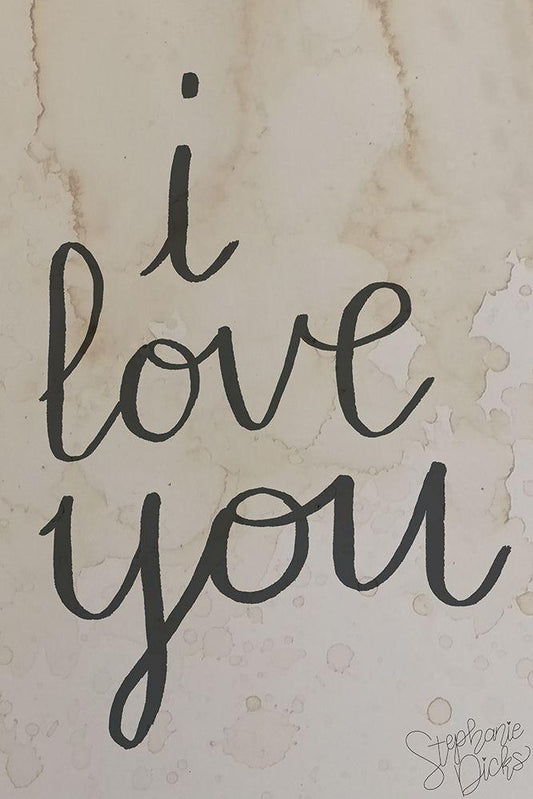 i
love
you
Stephanie
Dicks